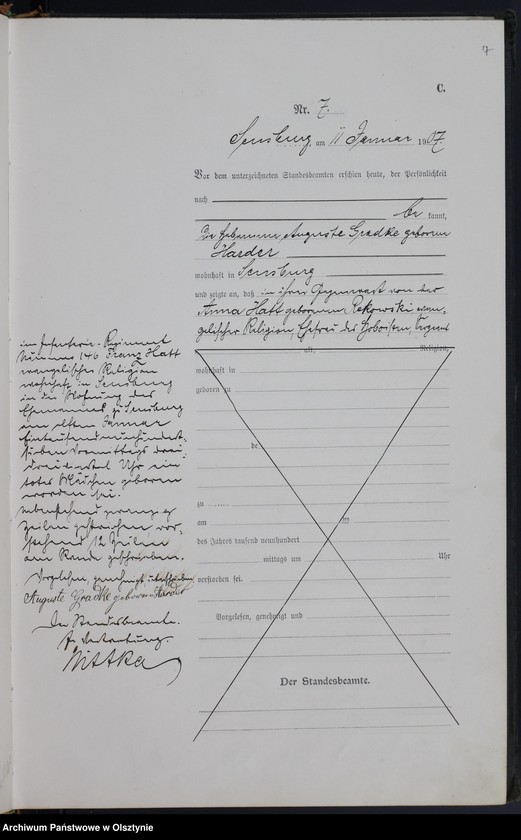 7
C.
Nr. 7.
Sensburg, am 11 Januar 1907.
Vor dem unterzeichneten Standesbeamten erschien heute, der Persönlichkeit
nach
be kannt,
die Hebamme Auguste Gradke geborene
Harder
wohnhaft in Sensburg
und zeigte an, daß in ihrer Gegenwart von der
Anna Hatt geborenen Rekowski evan-
gelischer Religion, Ehefrau des Hoboisten, Sergeant
alt, Religion,
wohnhaft in
geboren zu
de
zu
am ten
des Jahres tausend neunhundert
mittags um Uhr
verstorben sei.
Vorgelesen, genehmigt und
Der Standesbeamte.
im Infanterie-Regiment
Nummer 146 Franz Hatt
evangelischer Religion
wohnhaft in Sensburg
in der Wohnung des
Ehemannes zu Sensburg
am elften Januar
tausendneunhundert-
sieben Vormittags drei
dreiviertel Uhr ein
totes Mädchen geboren
worden sei.
Nebenstehend
Zeilen gestrichen vor-
stehend 12 Zeilen
am Rande geschrieben.
Vorgelesen, genehmigt, unterschrieben
Auguste Gradke geborene Harder
Der Standesbeamte.
In Vertretung.
Wittka
Archiwum Państwowe w Olsztynie